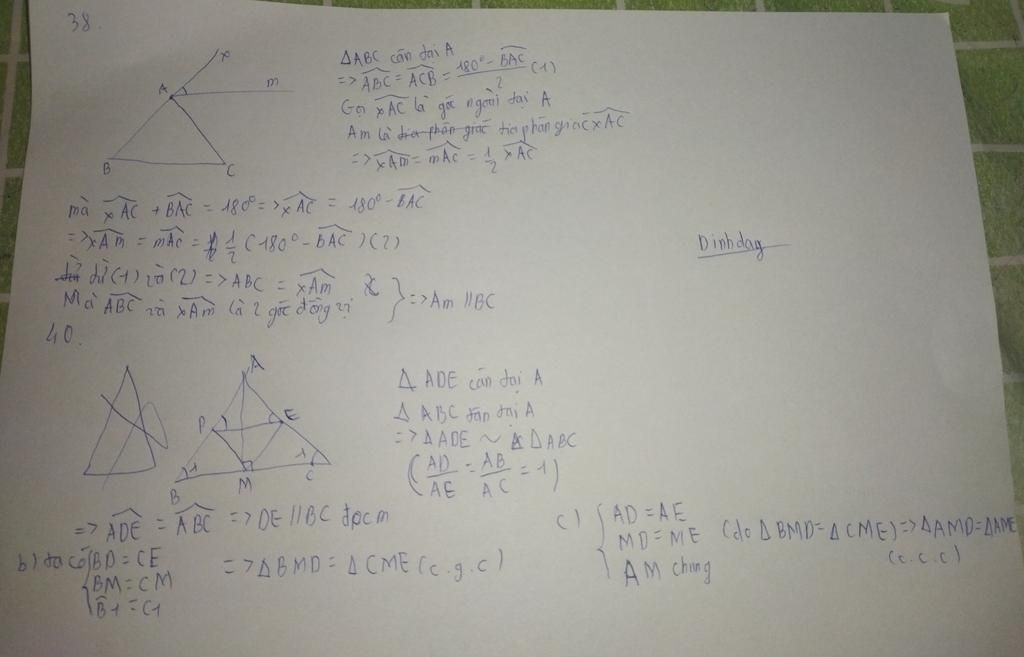 38.
x
A
m
B
C
ΔABC cân tại A
=> ABC = ACB = (180° - BAC)/2 (1)
Gọi xAC là góc ngoài tại A
Am là tia phân giác tia phân giác xAC
=> xAm = mAC = 1/2 xAC
mà xAC + BAC = 180° => xAC = 180° - BAC
=> xAm = mAC = 1/2 (180° - BAC) (2)
từ (1) và (2) => ABC = xAm
Mà ABC và xAm là 2 góc đồng vị } => Am // BC
Dinhday
40.
A
D
E
1
1
B
M
C
Δ ADE cân tại A
Δ ABC cân tại A
=> ΔADE ~ ΔABC
(AD/AE = AB/AC = 1)
=> ADE = ABC => DE // BC đpcm
b) ta có { BD = CE
BM = CM
B1 = C1
=> ΔBMD = ΔCME (c.g.c)
c) { AD = AE
MD = ME (do ΔBMD = ΔCME) => ΔAMD = ΔAME
AM chung
(c.c.c)